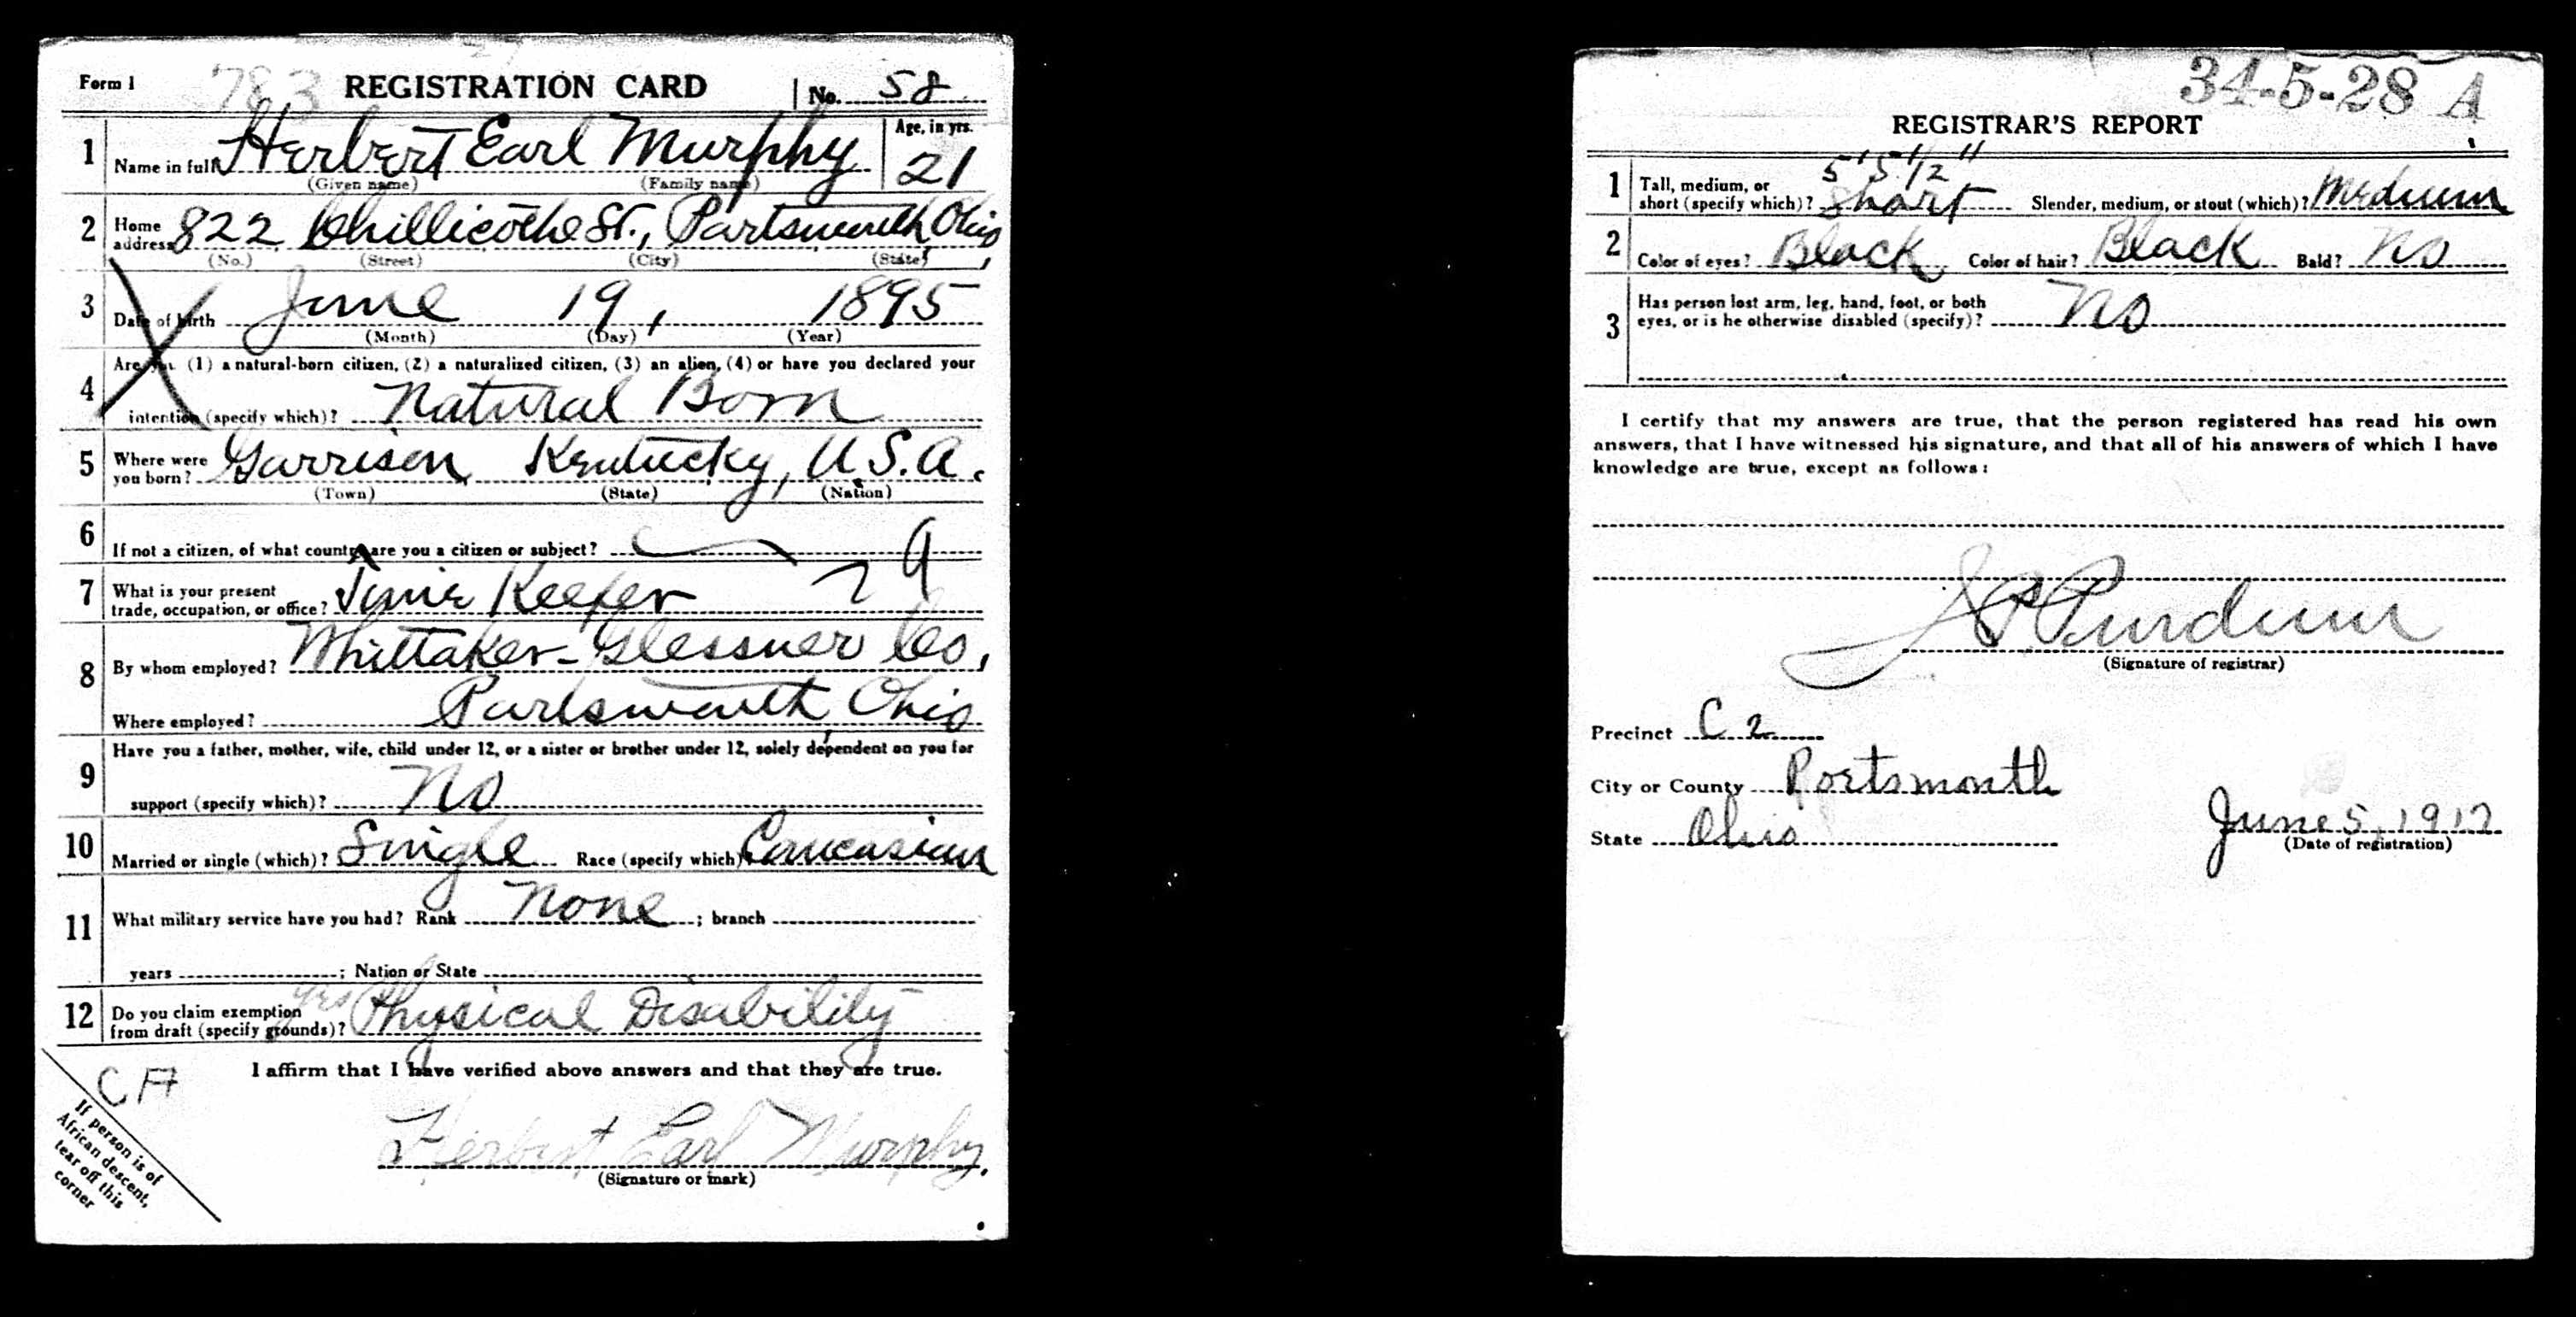 Form 1 783 REGISTRATION CARD No. 58
1 Name in full Herbert Earl Murphy Age, in yrs. 21
(Given name) (Family name)
2 Home address 822 Chillicothe St., Portsmouth Ohio
(No.) (Street) (City) (State)
3 Date of birth June 19, 1895
(Month) (Day) (Year)
4 Are you (1) a natural-born citizen, (2) a naturalized citizen, (3) an alien, (4) or have you declared your
intention (specify which)? Natural Born
5 Where were you born? Garrison Kentucky, U.S.A.
(Town) (State) (Nation)
6 If not a citizen, of what country are you a citizen or subject?
7 What is your present trade, occupation, or office? Time Keeper 29
8 By whom employed? Whittaker-Glessner Co,
Where employed? Portsmouth, Ohio
9 Have you a father, mother, wife, child under 12, or a sister or brother under 12, solely dependent on you for
support (specify which)? No
10 Married or single (which)? Single Race (specify which)? Caucasian
11 What military service have you had? Rank None ; branch
years ; Nation or State
12 Do you claim exemption from draft (specify grounds)? yes Physical Disability
I affirm that I have verified above answers and that they are true.
Herbert Earl Murphy.
(Signature or mark)
If person is of
African descent,
tear off this
corner
34-5-28 A
REGISTRAR'S REPORT
5' 5 1/2"
1 Tall, medium, or short (specify which)? Short Slender, medium, or stout (which)? Medium
2 Color of eyes? Black Color of hair? Black Bald? No
3 Has person lost arm, leg, hand, foot, or both
eyes, or is he otherwise disabled (specify)? No
I certify that my answers are true, that the person registered has read his own
answers, that I have witnessed his signature, and that all of his answers of which I have
knowledge are true, except as follows:
Purdum
(Signature of registrar)
Precinct C 2
City or County Portsmouth
State Ohio June 5, 1917
(Date of registration)